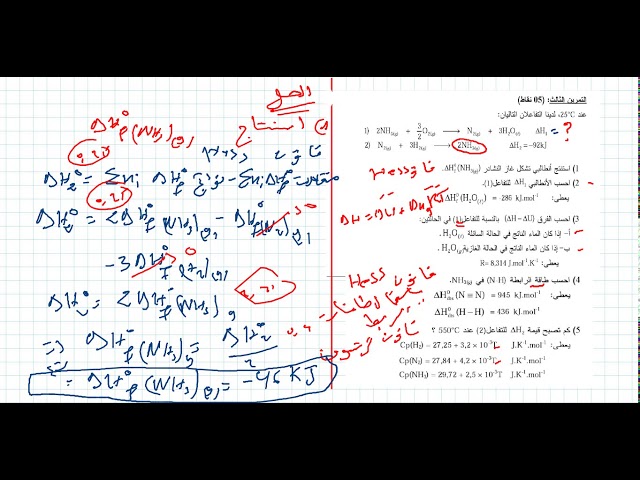 التمرين الثالث: (05 نقاط)
عند 25°C، لدينا التفاعلان التاليان:
1) 2NH₃(g) + 3/2 O₂(g) → N₂(g) + 3H₂O(ℓ) ΔH₁ = ?
2) N₂(g) + 3H₂(g) → 2NH₃(g) ΔH₂ = -92kj
1) استنتج أنطالبي تشكل غاز النشادر ΔH°f(NH₃)(g).
2) احسب الأنطالبي ΔH₁ للتفاعل(1).
يعطى: ΔH°f(H₂O)(ℓ) = - 286 kj.mol⁻¹
3) احسب الفرق (ΔH – ΔU) بالنسبة للتفاعل(1) في الحالتين:
أ- إذا كان الماء الناتج في الحالة السائلة H₂O(ℓ).
ب- إذا كان الماء الناتج في الحالة الغازية H₂O(g).
R= 8,314 J.mol⁻¹.K⁻¹
4) احسب طاقة الرابطة N – H في NH₃(g).
يعطى: ΔH°dis (N ≡ N) = 945 kj.mol⁻¹
ΔH°dis (H – H) = 436 kj.mol⁻¹
5) كم تصبح قيمة ΔH₂ للتفاعل(2) عند 550°C ؟
يعطى: Cp(H₂) = 27,25 + 3,2 ×10⁻³T J.K⁻¹.mol⁻¹
Cp(N₂) = 27,84 + 4,2 ×10⁻³T J.K⁻¹.mol⁻¹
Cp(NH₃) = 29,72 + 2,5 ×10⁻³T J.K⁻¹.mol⁻¹
الحل
استنتاج ΔH°f(NH₃)(g)
0,25
0,25
ΔH°₂ = 2ΔH°f(NH₃)(g) - ΔH°f(N₂)(g)
- 3ΔH°f(H₂)(g)
ΔH°₂ = 2ΔH°f(NH₃)(g)
⇒ ΔH°f(NH₃)(g) = ΔH°₂/2
ΔH°f(NH₃)(g) = -46 KJ
Hess